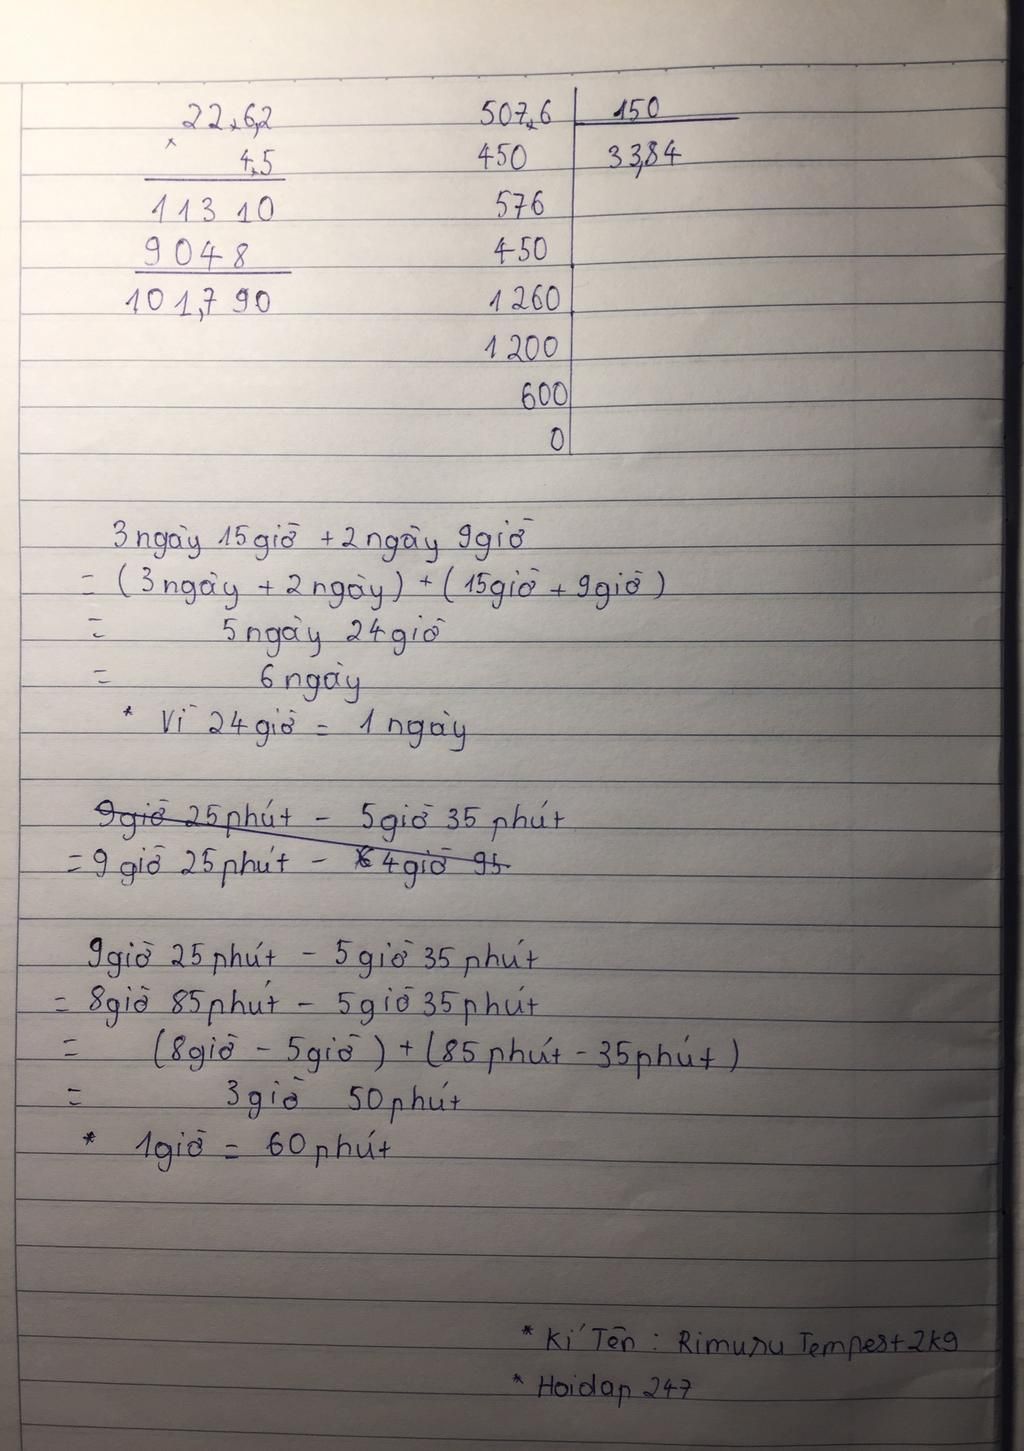 22,6,2
×
4,5
11310
9048
101,790
507,6 150
450 33,84
576
450
1260
1200
600
0
3 ngày 15 giờ + 2 ngày 9 giờ
= (3 ngày + 2 ngày) + (15 giờ + 9 giờ)
= 5 ngày 24 giờ
= 6 ngày
* Vì 24 giờ = 1 ngày
9 giờ 25 phút - 5 giờ 35 phút
= 9 giờ 25 phút - 4 giờ 95
9 giờ 25 phút - 5 giờ 35 phút
= 8 giờ 85 phút - 5 giờ 35 phút
= (8 giờ - 5 giờ) + (85 phút - 35 phút)
= 3 giờ 50 phút
* 1 giờ = 60 phút
* Kí Tên : Rimuru Tempest 2k9
* Hoidap 247